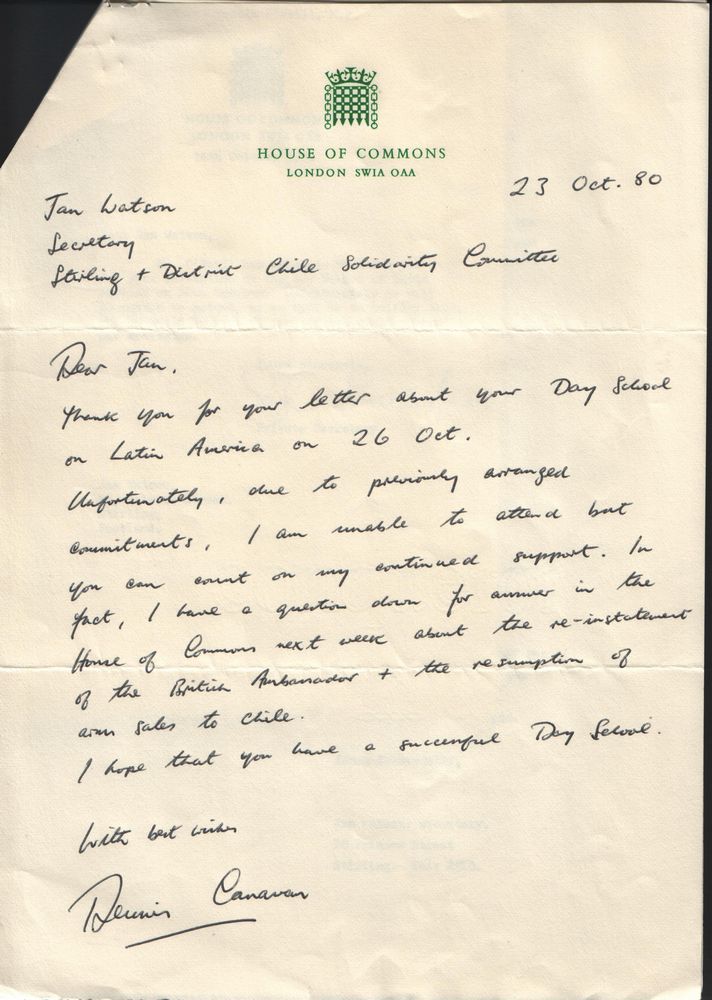 HOUSE OF COMMONS
LONDON SW1A 0AA
23 Oct. 80
Jan Watson
Secretary
Stirling + District Chile Solidarity Committee
Dear Jan,
Thank you for your letter about your Day School
on Latin America on 26 Oct.
Unfortunately, due to previously arranged
commitments, I am unable to attend but
you can count on my continued support. In
fact, I have a question down for answer in the
House of Commons next week about the re-instatement
of the British Ambassador + the resumption of
arms sales to Chile.
I hope that you have a successful Day School.
With best wishes
Dennis Canavan